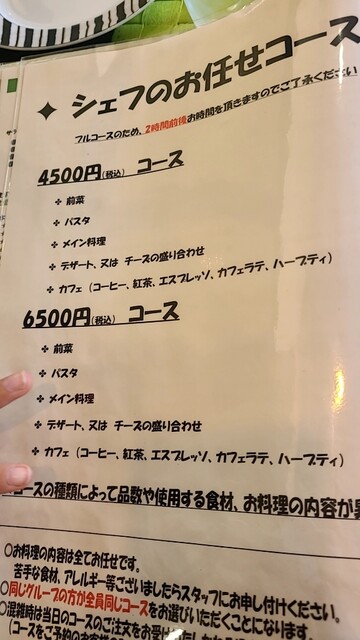 ✦ シェフのお任せコース
フルコースのため、2時間前後お時間を頂きますのでご了承ください
4500円(税込) コース
✤ 前菜
✤ パスタ
✤ メイン料理
✤ デザート、又は チーズの盛り合わせ
✤ カフェ (コーヒー、紅茶、エスプレッソ、カフェラテ、ハーブティ)
6500円(税込) コース
✤ 前菜
✤ パスタ
✤ メイン料理
✤ デザート、又は チーズの盛り合わせ
✤ カフェ (コーヒー、紅茶、エスプレッソ、カフェラテ、ハーブティ)
コースの種類によって品数や使用する食材、お料理の内容が
○お料理の内容は全てお任せです。
苦手な食材、アレルギー等ございましたらスタッフにお申し付けください。
○同じグループの方が全員同じコースをお選びいただくことになります。
○混雑時は当日のコースのご注文をお受け
(コースをご予約のお客様